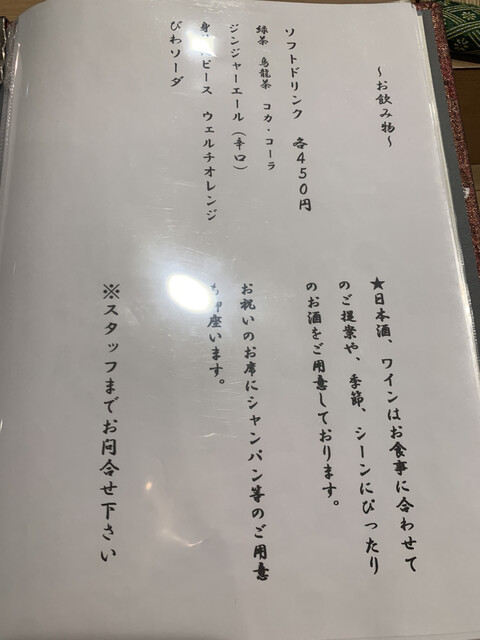 ～お飲み物～
ソフトドリンク　各４５０円
緑茶　烏龍茶　コカ・コーラ
ジンジャーエール（辛口）
ピース　ウェルチオレンジ
びわソーダ
★日本酒、ワインはお食事に合わせて
のご提案や、季節、シーンにぴったり
のお酒をご用意しております。
お祝いのお席にシャンパン等のご用意
も御座います。
※スタッフまでお問合せ下さい